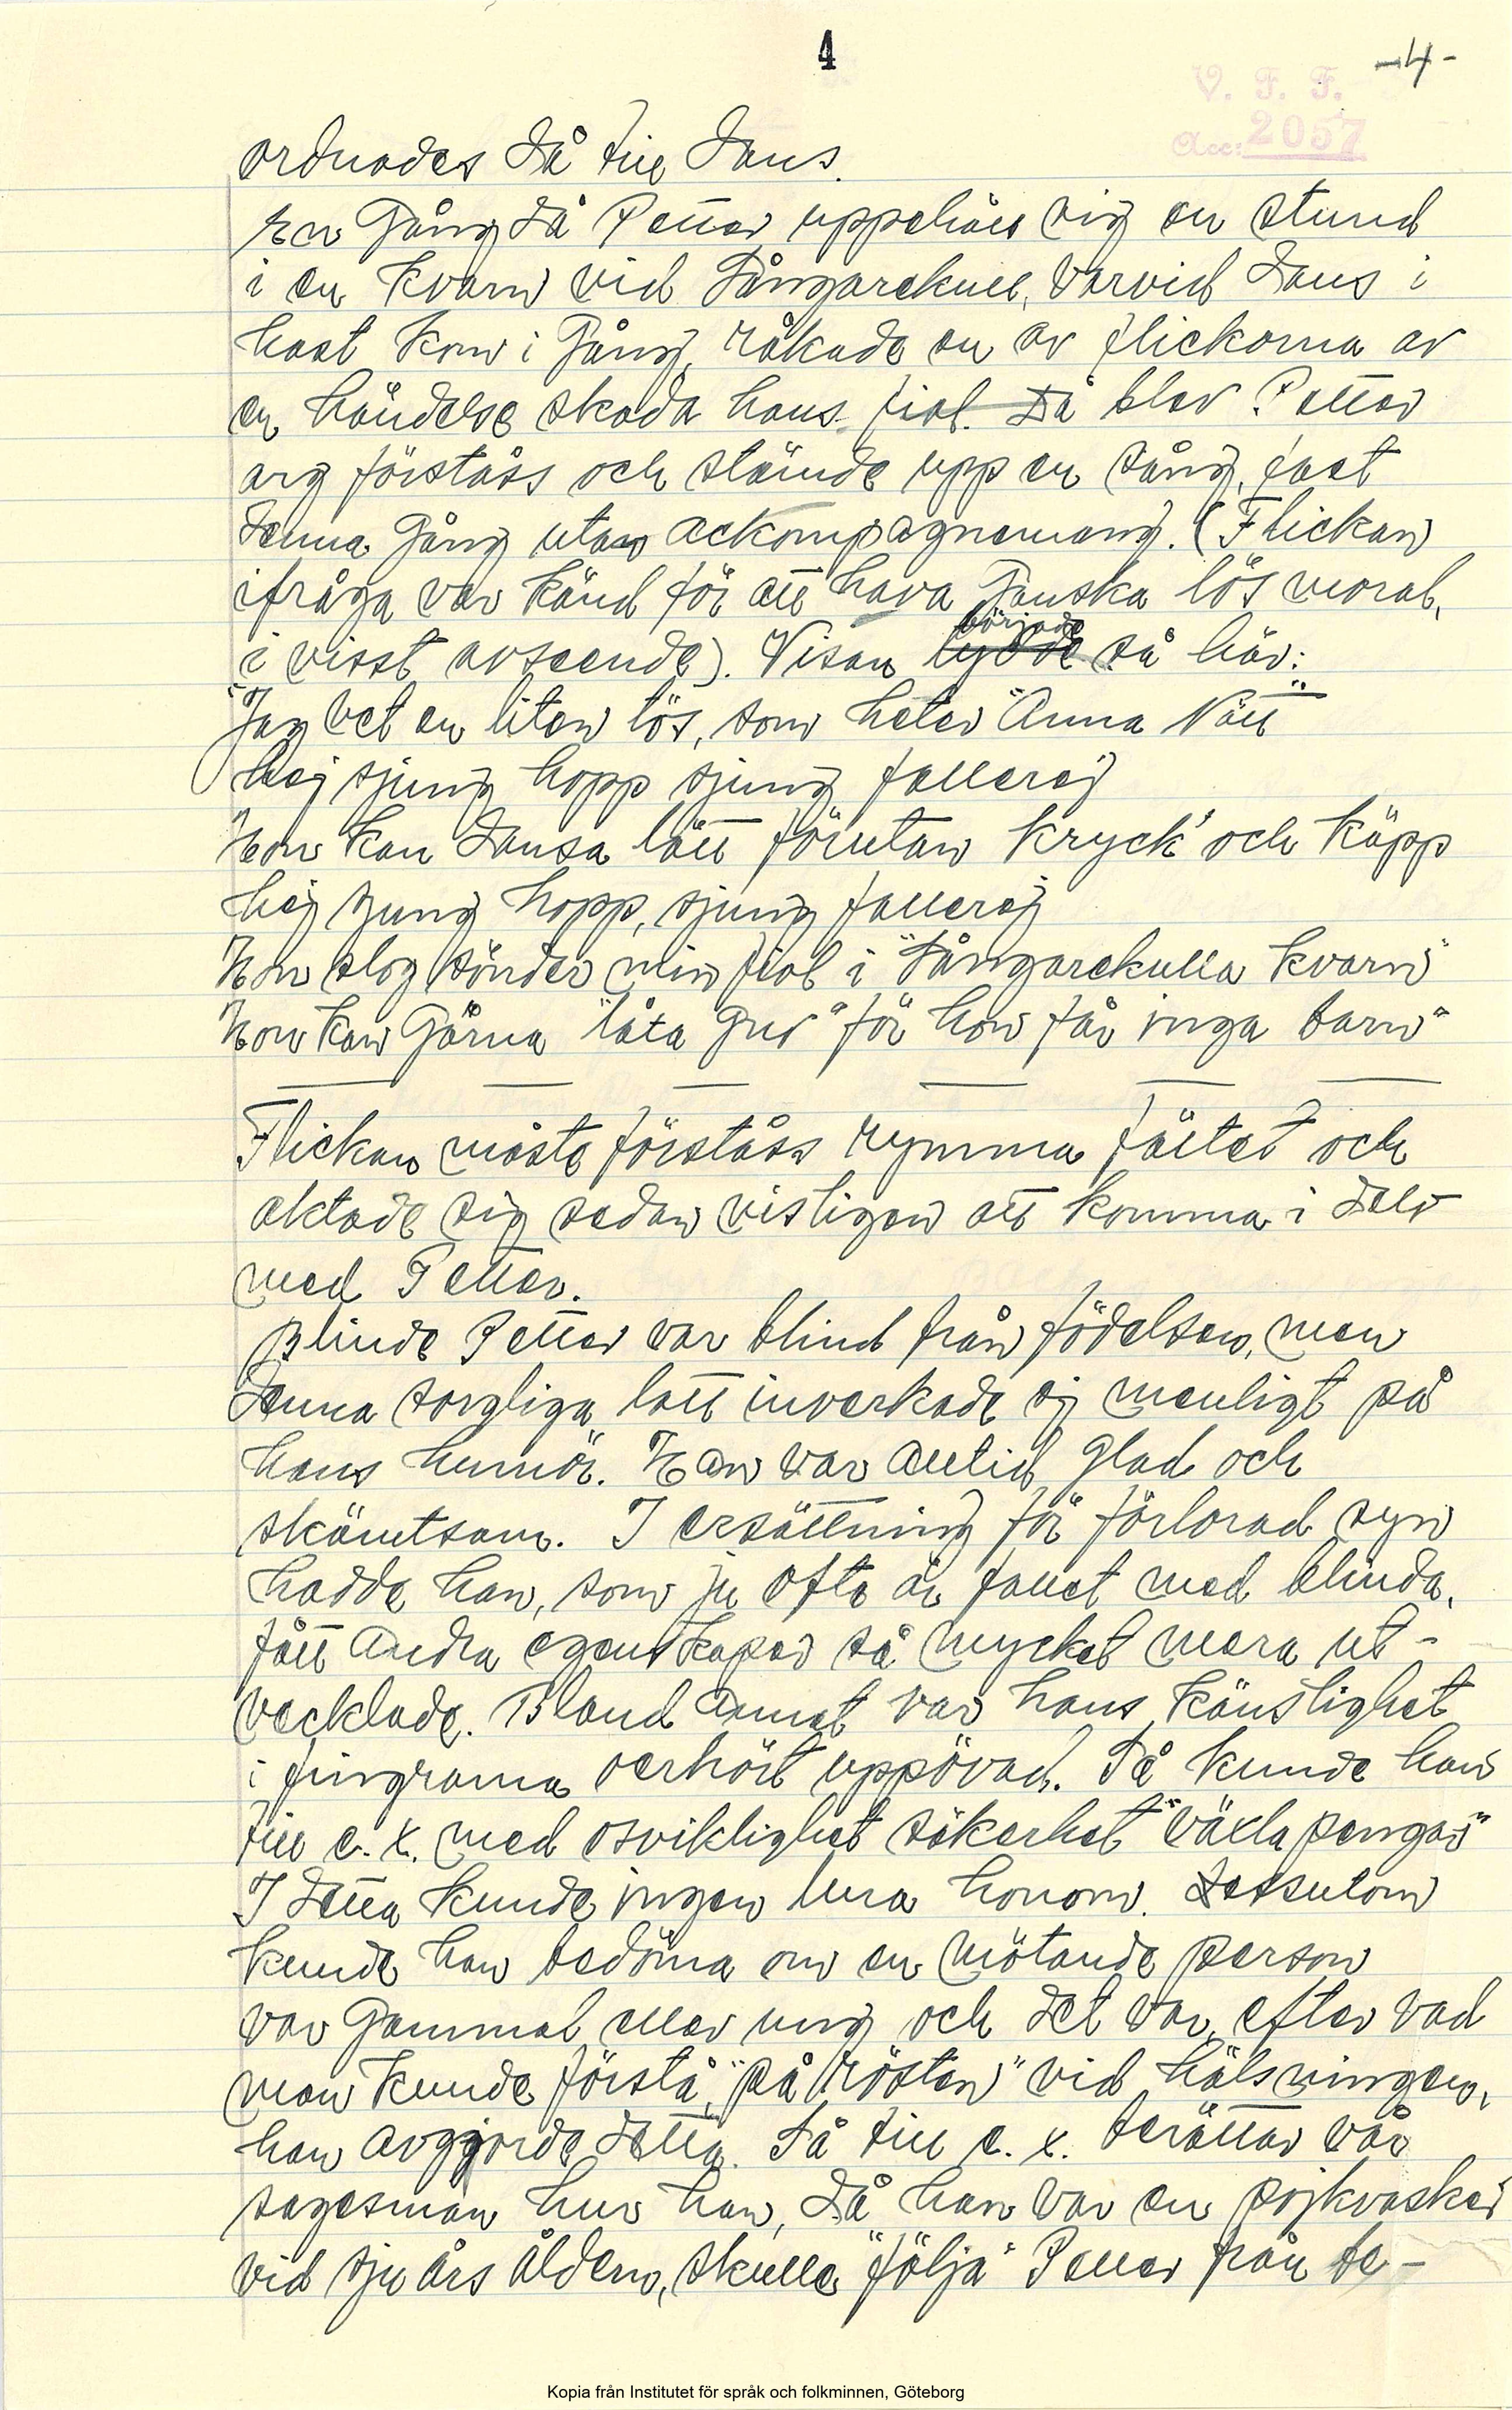 4
-4-
V. F. F.
Acc: 2057
ordnades då till dans.
En gång då Petter uppehöll sig en stund
i en kvarn vid Sångarekull, varvid dans i
hast kom i gång, råkade en av flickorna av
en händelse skada hans fiol. Då blev Petter
arg förståss och stämde upp en sång, fast
denna gång utan ackompagnemang. (Flickan
ifråga var känd för att hava ganska lös moral,
i visst avseende). Visan började så här:
"Jag vet en liten tös, som heter "Anna Nätt"
hej sjung hopp sjung fallerej
Hon kan dansa lätt förutan kryck' och käpp
hej sjung hopp, sjung fallerej
Hon slog sönder min fiol i "Sångarekulla kvarn"
Hon kan gärna "låta gno" för hon får inga barn"
Flickan måste förståss rymma fältet och
aktade sig sedan visligen att komma i delo
med Petter.
Blinde Petter var blind från födelsen, men
denna sorgliga lott inverkade ej menligt på
hans humör. Han var alltid glad och
skämtsam. I ersättning för förlorad syn
hadde han, som ju ofta är fallet med blinda,
fått andra egenskaper så mycket mera ut-
vecklade. Bland annat var hans känslighet
i fingrarna oerhört uppövad. Så kunde han
till e. x. med osviklighet säkerhet "växla pengar"
I detta kunde ingen lura honom. Dessutom
kunde han bedöma om en mötande person
var gammal eller ung och det var, efter vad
man kunde förstå, "på rösten" vid hälsningen,
han avgjorde detta. Så till e. x. berättar vår
sagesman hur han, då han var en pojkvasker
vid sju års åldern, skulle "följa" Petter från be-
Kopia från Institutet för språk och folkminnen, Göteborg